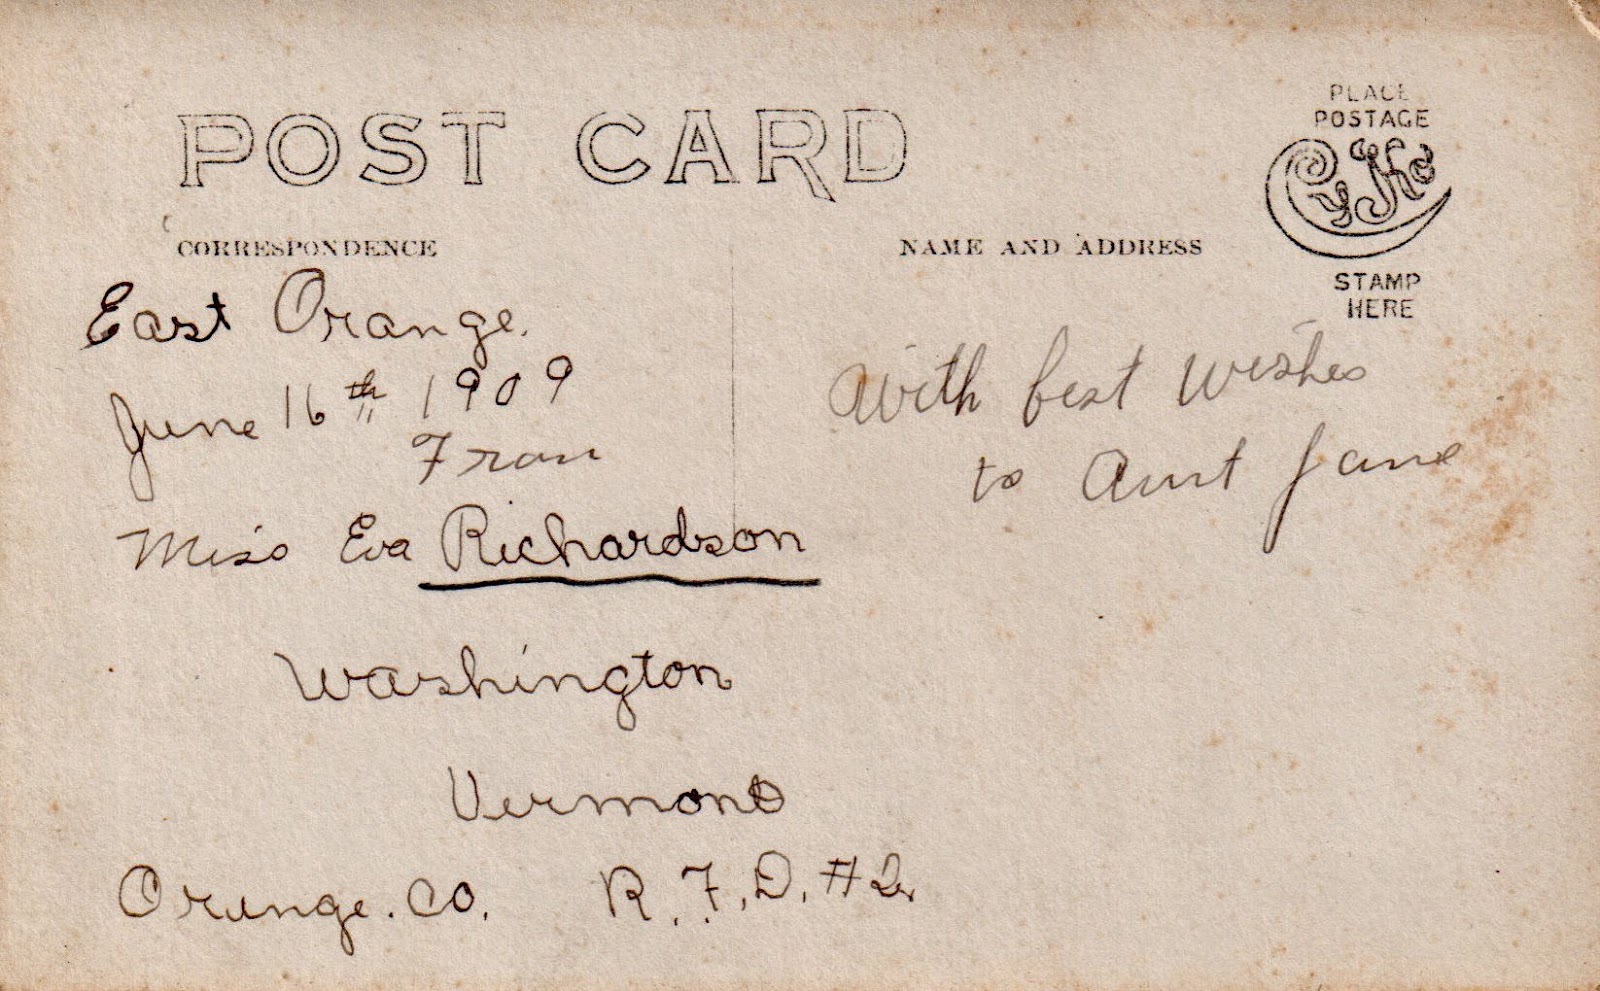 POST CARD
CORRESPONDENCE
NAME AND ADDRESS
PLACE
POSTAGE
CYKO
STAMP
HERE
East Orange.
June 16th 1909
From
Miss Eva Richardson
Washington
Vermont
Orange. Co. R.F.D. #2
With best wishes
to Aunt Jane